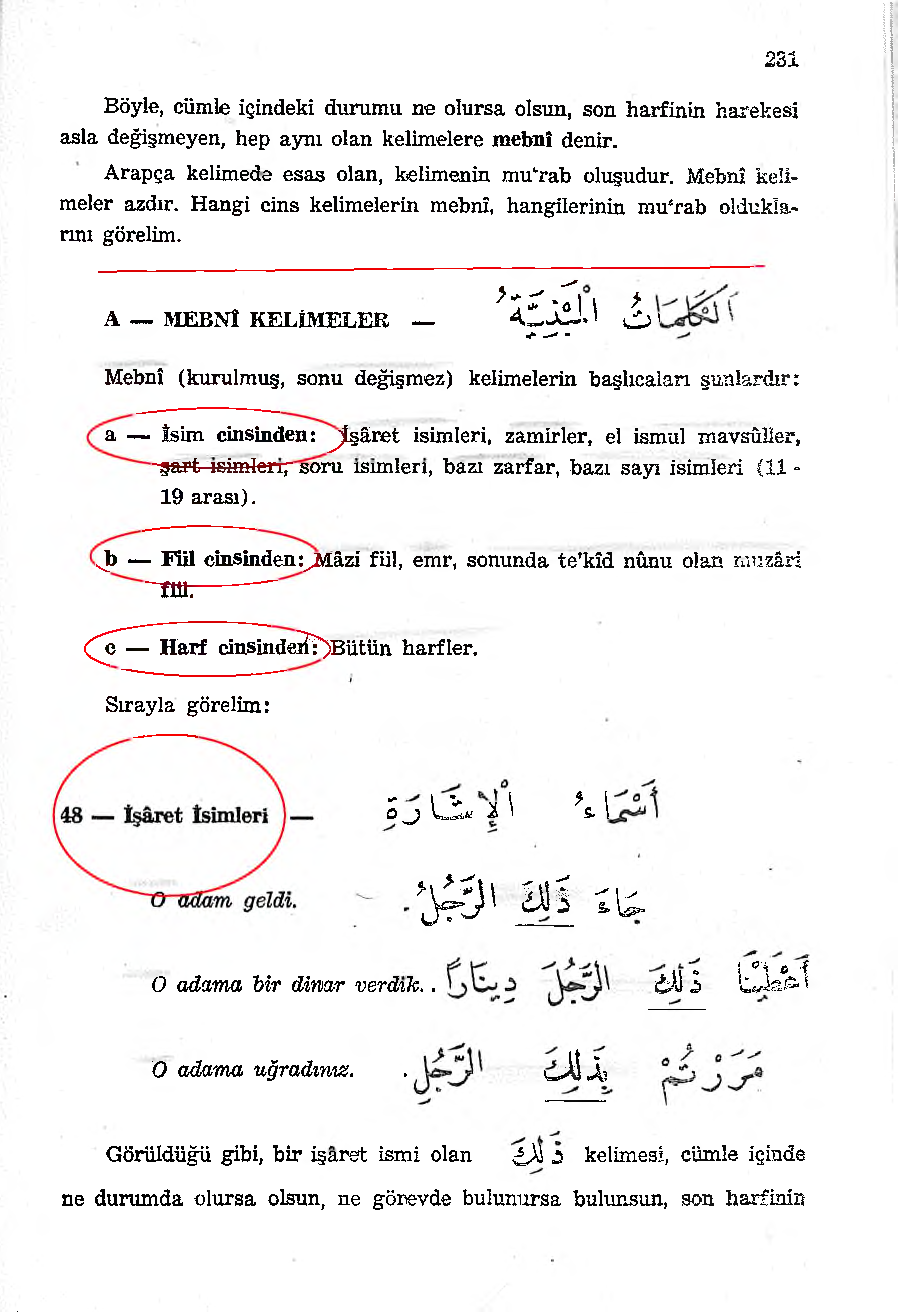 231
Böyle, cümle içindeki durumu ne olursa olsun, son harfinin harekesi
asla değişmeyen, hep aynı olan kelimelere mebnî denir.
Arapça kelimede esas olan, kelimenin mu'rab oluşudur. Mebnî keli-
meler azdır. Hangi cins kelimelerin mebnî, hangilerinin mu'rab oldukla-
rını görelim.
A — MEBNÎ KELİMELER — اَلْكَلِمَاتُ الْمَبْنِيَّةُ
Mebnî (kurulmuş, sonu değişmez) kelimelerin başlıcaları şunlardır:
a — İsim cinsinden: İşâret isimleri, zamirler, el ismul mavsûller,
şart isimleri, soru isimleri, bazı zarfar, bazı sayı isimleri (11 -
19 arası).
b — Fiil cinsinden: Mâzi fiil, emr, sonunda te'kîd nûnu olan muzâri
fiil.
c — Harf cinsinden: Bütün harfler.
Sırayla görelim:
48 — İşâret İsimleri — أَسْمَاءُ الْإِشَارَةِ
O adam geldi. جَاءَ ذَلِكَ الرَّجُلُ.
O adama bir dinar verdik. أَعْطَيْنَا ذَلِكَ الرَّجُلَ دِينَارًا.
O adama uğradınız. مَرَرْتُمْ بِذَلِكَ الرَّجُلِ.
Görüldüğü gibi, bir işâret ismi olan ذَلِكَ kelimesi, cümle içinde
ne durumda olursa olsun, ne görevde bulunursa bulunsun, son harfinin